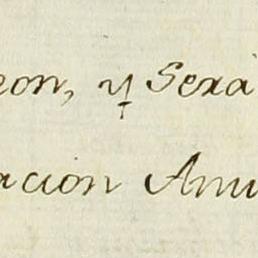 eon, y Sexa
acion Anu